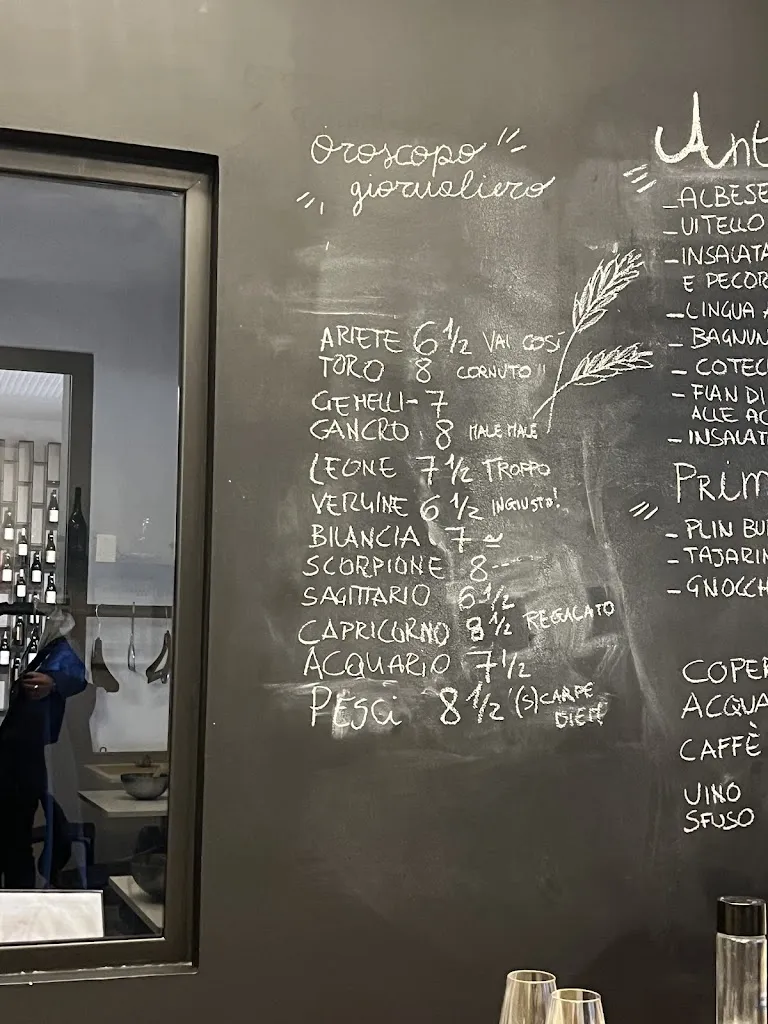 Oroscopo
giornaliero
ARIETE 6 1/2 VAI COSÍ
TORO 8 CORNUTO !!
GEMELLI - 7
CANCRO 8 MALE MALE
LEONE 7 1/2 TROPPO
VERGINE 6 1/2 INGIUSTO!
BILANCIA 7
SCORPIONE 8 ---
SAGITTARIO 6 1/2
CAPRICORNO 8 1/2 REGALATO
ACQUARIO 7 1/2
PESCI 8 1/2 (S)CARPE
DIEM
Ant
- ALBESE
- VITELLO
- INSALATA
E PECOR
- LINGUA A
- BAGNUN
- COTEC
- FLAN DI
ALLE AC
- INSALAT
PRIM
- PLIN BU
- TAJARIN
- GNOCCH
COPER
ACQUA
CAFFÈ
VINO
SFUSO